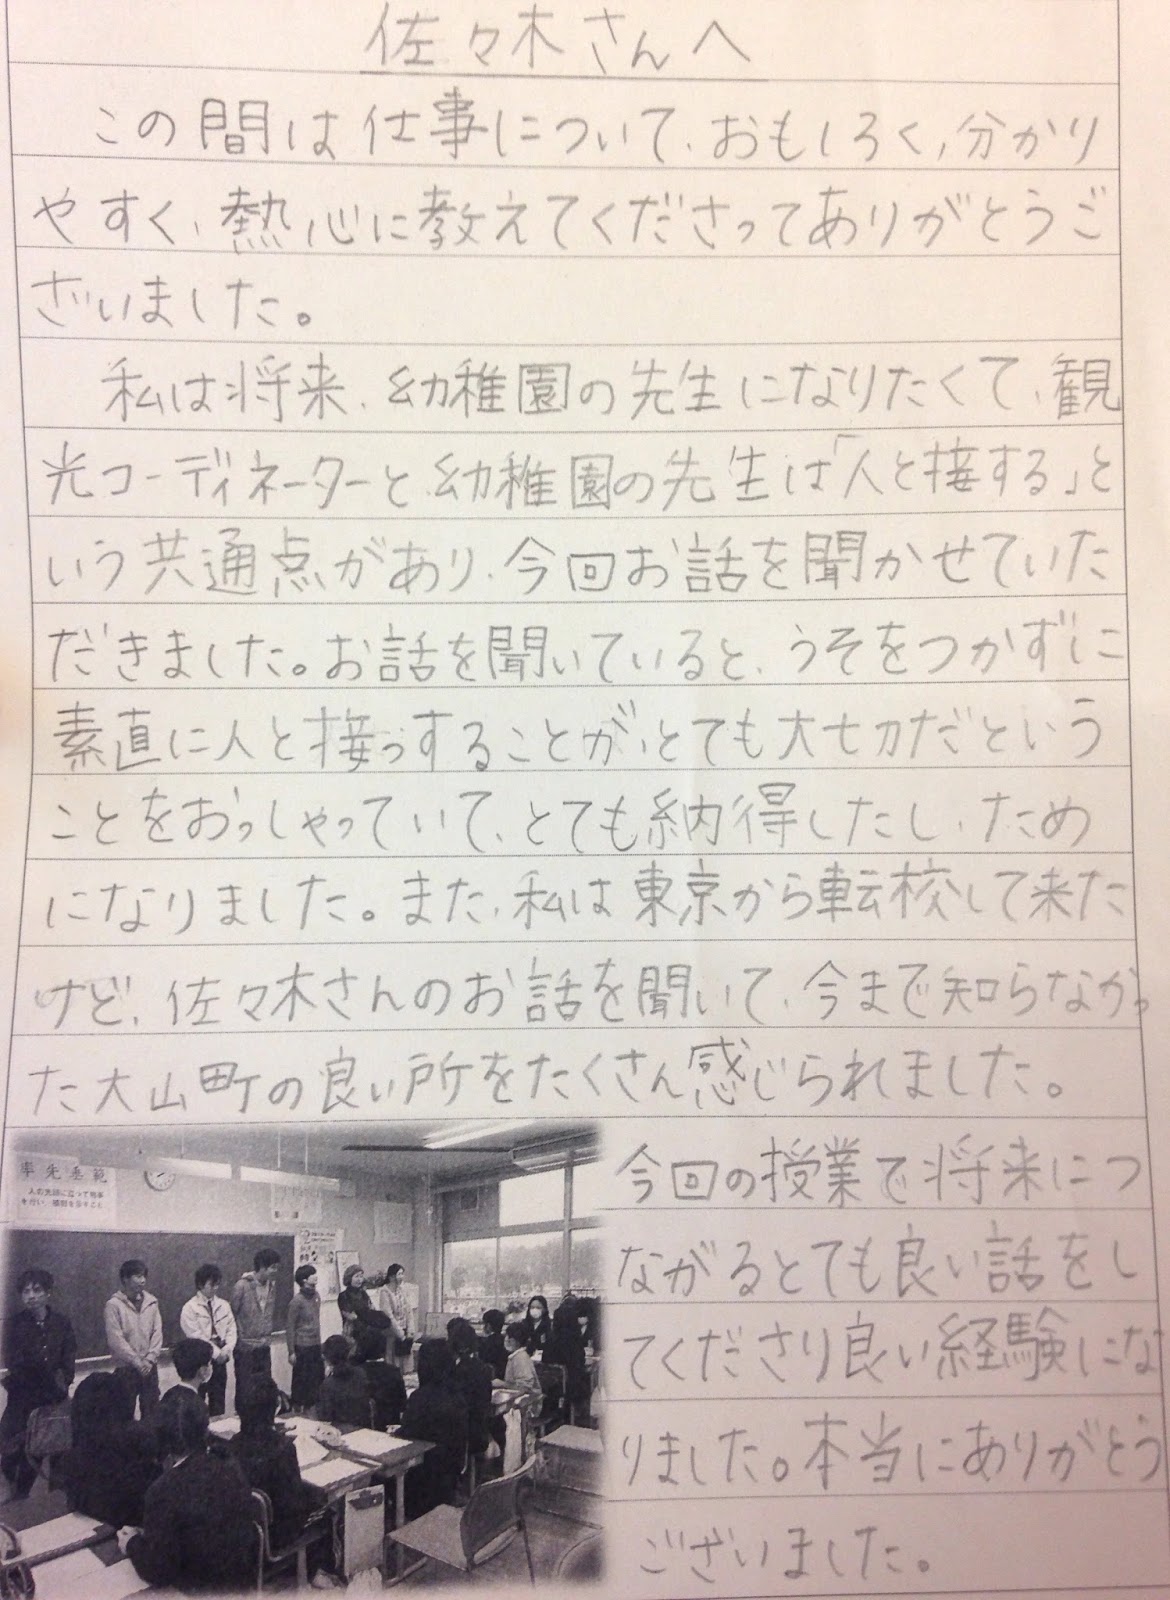 佐々木さんへ
この間は仕事について、おもしろく、分かり
やすく、熱心に教えてくださってありがとうご
ざいました。
私は将来、幼稚園の先生になりたくて、観
光コーディネーターと幼稚園の先生は「人と接する」と
いう共通点があり、今回お話を聞かせていた
だきました。お話を聞いていると、うそをつかずに
素直に人と接っすることが、とても大切だという
ことをおっしゃっていて、とても納得したし、ため
になりました。また、私は東京から転校して来た
けど、佐々木さんのお話を聞いて、今まで知らなかっ
た大山町の良い所をたくさん感じられました。
率先垂範
今回の授業で将来につ
ながるとても良い話をし
てくださり良い経験にな
りました。本当にありがとう
ございました。